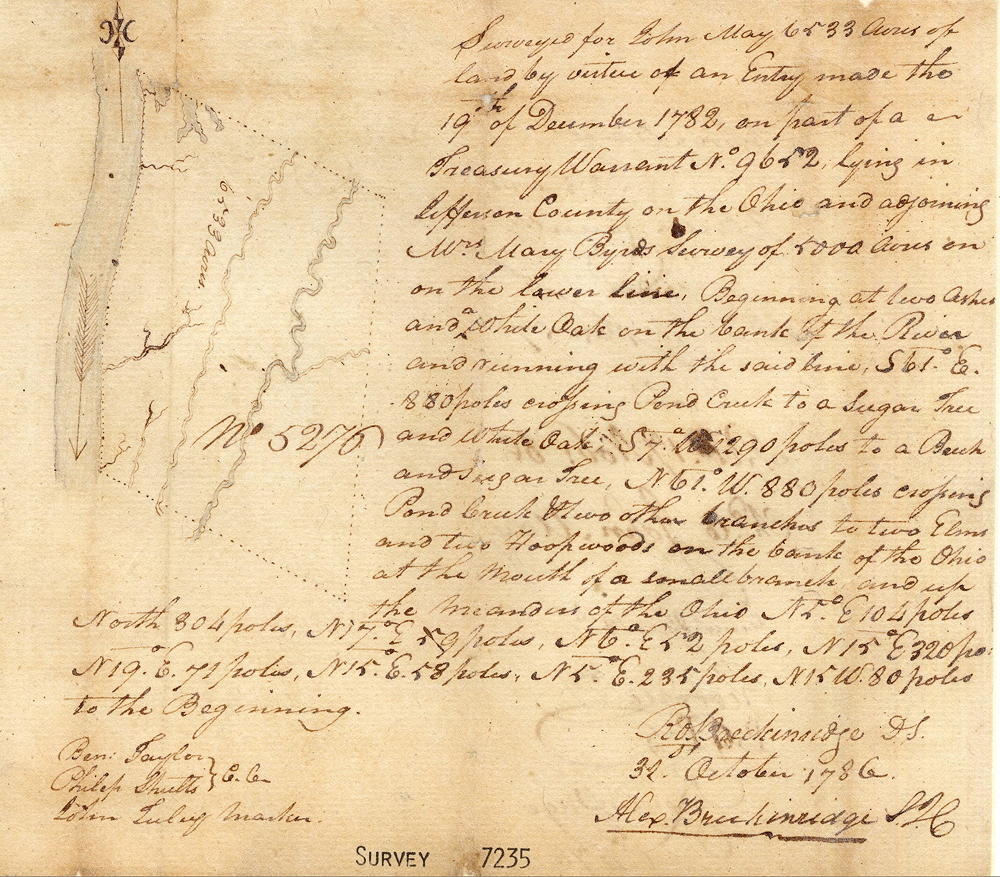 Surveyed for John May 6533 Acres of
land by virtue of an Entry made the
19th of December 1782, on part of a
Treasury Warrant No. 9652, lying in
Jefferson County on the Ohio and adjoining
Mrs. Mary Byrds Survey of 5000 Acres on
on the lower line, Beginning at two Ashes
and a White Oak on the bank of the River
and running with the said line, S61.° E.
880 poles crossing Pond Creek to a Sugar Tree
and White Oak S7.° W 1290 poles to a Beech
and Sugar Tree, N61.° W. 880 poles crossing
Pond Creek & two other branches to two Elms
and two Hoopwoods on the bank of the Ohio
at the Mouth of a small branch, and up
the Meanders of the Ohio N5.° E 104 poles
North 304 poles, N17.° E 59 poles, N6.° E 52 poles, N15° E 320 po:
N19.° E. 71 poles, N15.° E. 58 poles, N5.° E. 235 poles, N15 W. 80 poles
to the Beginning.
6533 Acres
No 5276
Ro. Breckinridge DS.
31.° October 1786.
Alex Breckinridge SJC
Ben: Taylor
Philip Shutts } C.C.
John Tuley Marker.
SURVEY 7235